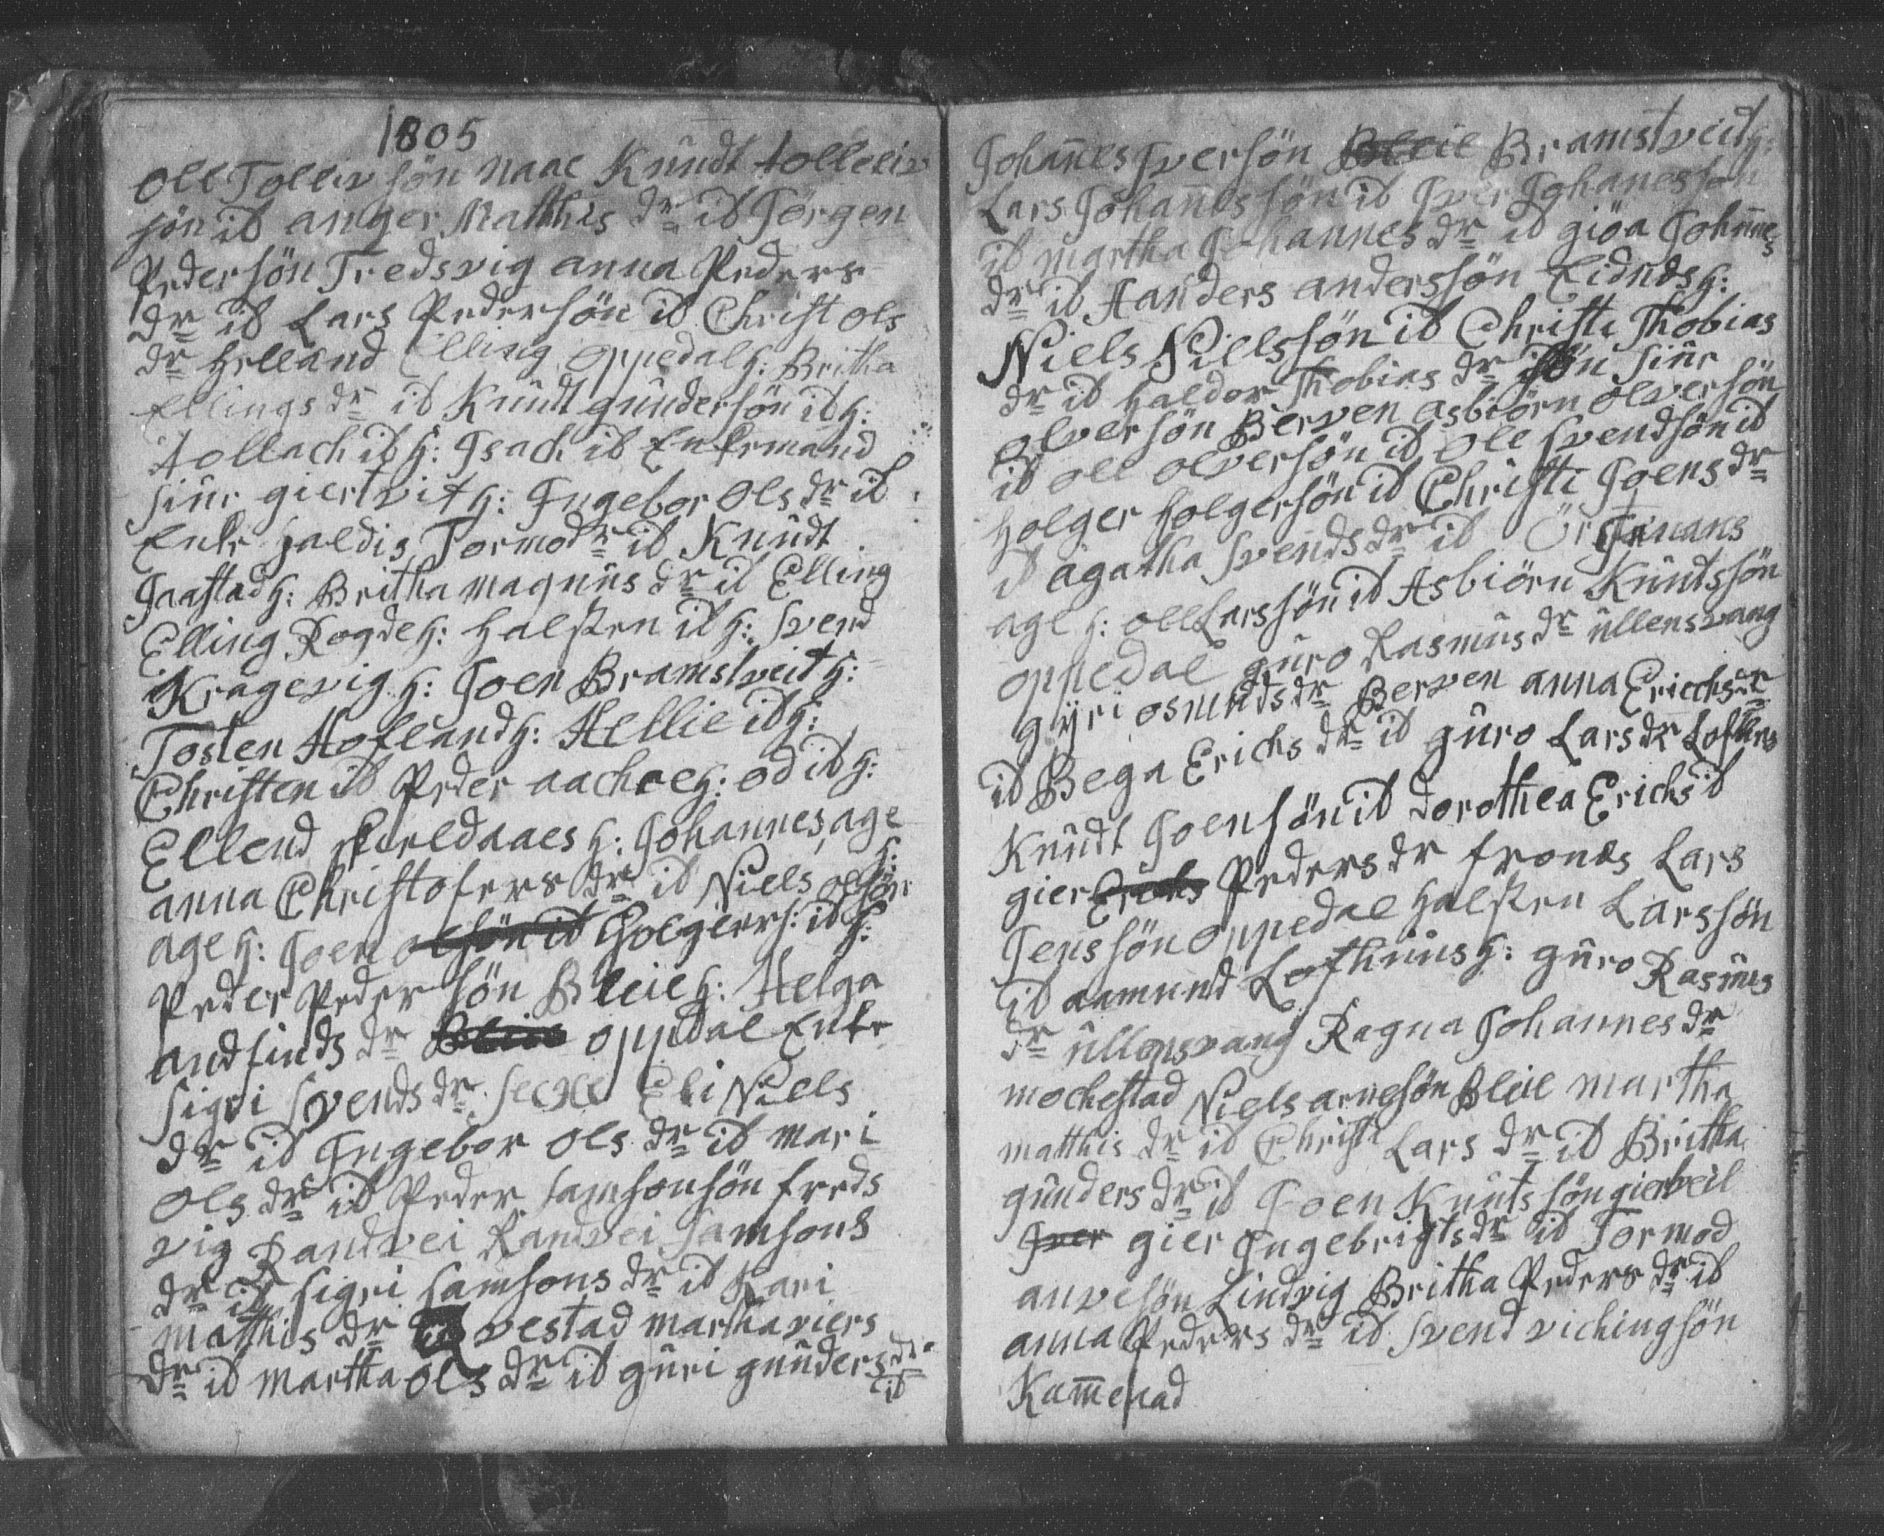 1805
Oll Tolliv sön naae Knudt tolleiv
sön id anger Matthis dr id Jörgen
Peder sön Tredsvig anna Peders
dr id Lars Peder sön id Christ ols
dr helland Elling oppedal h: Britha
Ellings dr id Knudt gunder sön id h:
tollach id h: Isach id Enkemand
siur giertvit h: Ingebor ols dr id
Enke haldis Tormo dr id Knudt
Jaastad h: Britha magnus dr id Elling
Elling Rogde h: halsten id h: svend
Kragevig h: Joen Bramstveit h:
Tosten Hofland h: Hellie id h:
Christen id Peder aachre h: od id h:
Ellend skieldaaes h: Johannes age
anna Christofers dr id Niels olsön h:
age h: Joen olsön id holgiers: id h:
Peder Peder sön Bleie h: Helga
andfinds dr Bleie oppdal Enke
sigri svends dr Eli Niels
dr id Ingebor ols dr id mari
ols dr id Peder samson sön freds
vig Randvei Randvei samsons
dr id sigri samsons dr id Kari
matthis dr vestad martha viers
dr id martha ols dr id guri gunders dr
id
Johan̄es Iversön Bleie Bramstveid h:
Lars Johan̄es sön id Iver Johanes sön
id martha Johannes dr id giöa Johan̄es
dr id Aanders anders sön Eidnds h:
Niels Niels sön id Christi Thobias
dr id haldor Thobias dr sön siur
olver sön Berven asbiörn olver sön
id oll olversön id oll svendsön id
holger holgersön id Christi Joens dr
id agatha svends dr id
age h: oll Larssön id Asbiörn Knudtssön
oppedal guro Rasmus dr ullensvang
gÿri osmunds dr Berven anna Erichs dr
id Bega Erichs dr id guro Lars dr Lofthus
Knudt Joensön id dorothea Erichs id
gier Erichs Peders dr fronæs Lars
Jens sön oppedal halsten Larssön
id aamund Lofthuus h: guro Rasmus
dr ullensvang Ragna Johannes dr
mochestad Niels arnesön Bleie martha
matthis dr id Christi Lars dr id Britha
gunders dr id Joen Knuts sön gierveil
Iver gier Ingebrigts dr id Tormod
anvesön Lindvig Britha Peders dr id
anna Peders dr id svend vichingsön
Kam̄enad